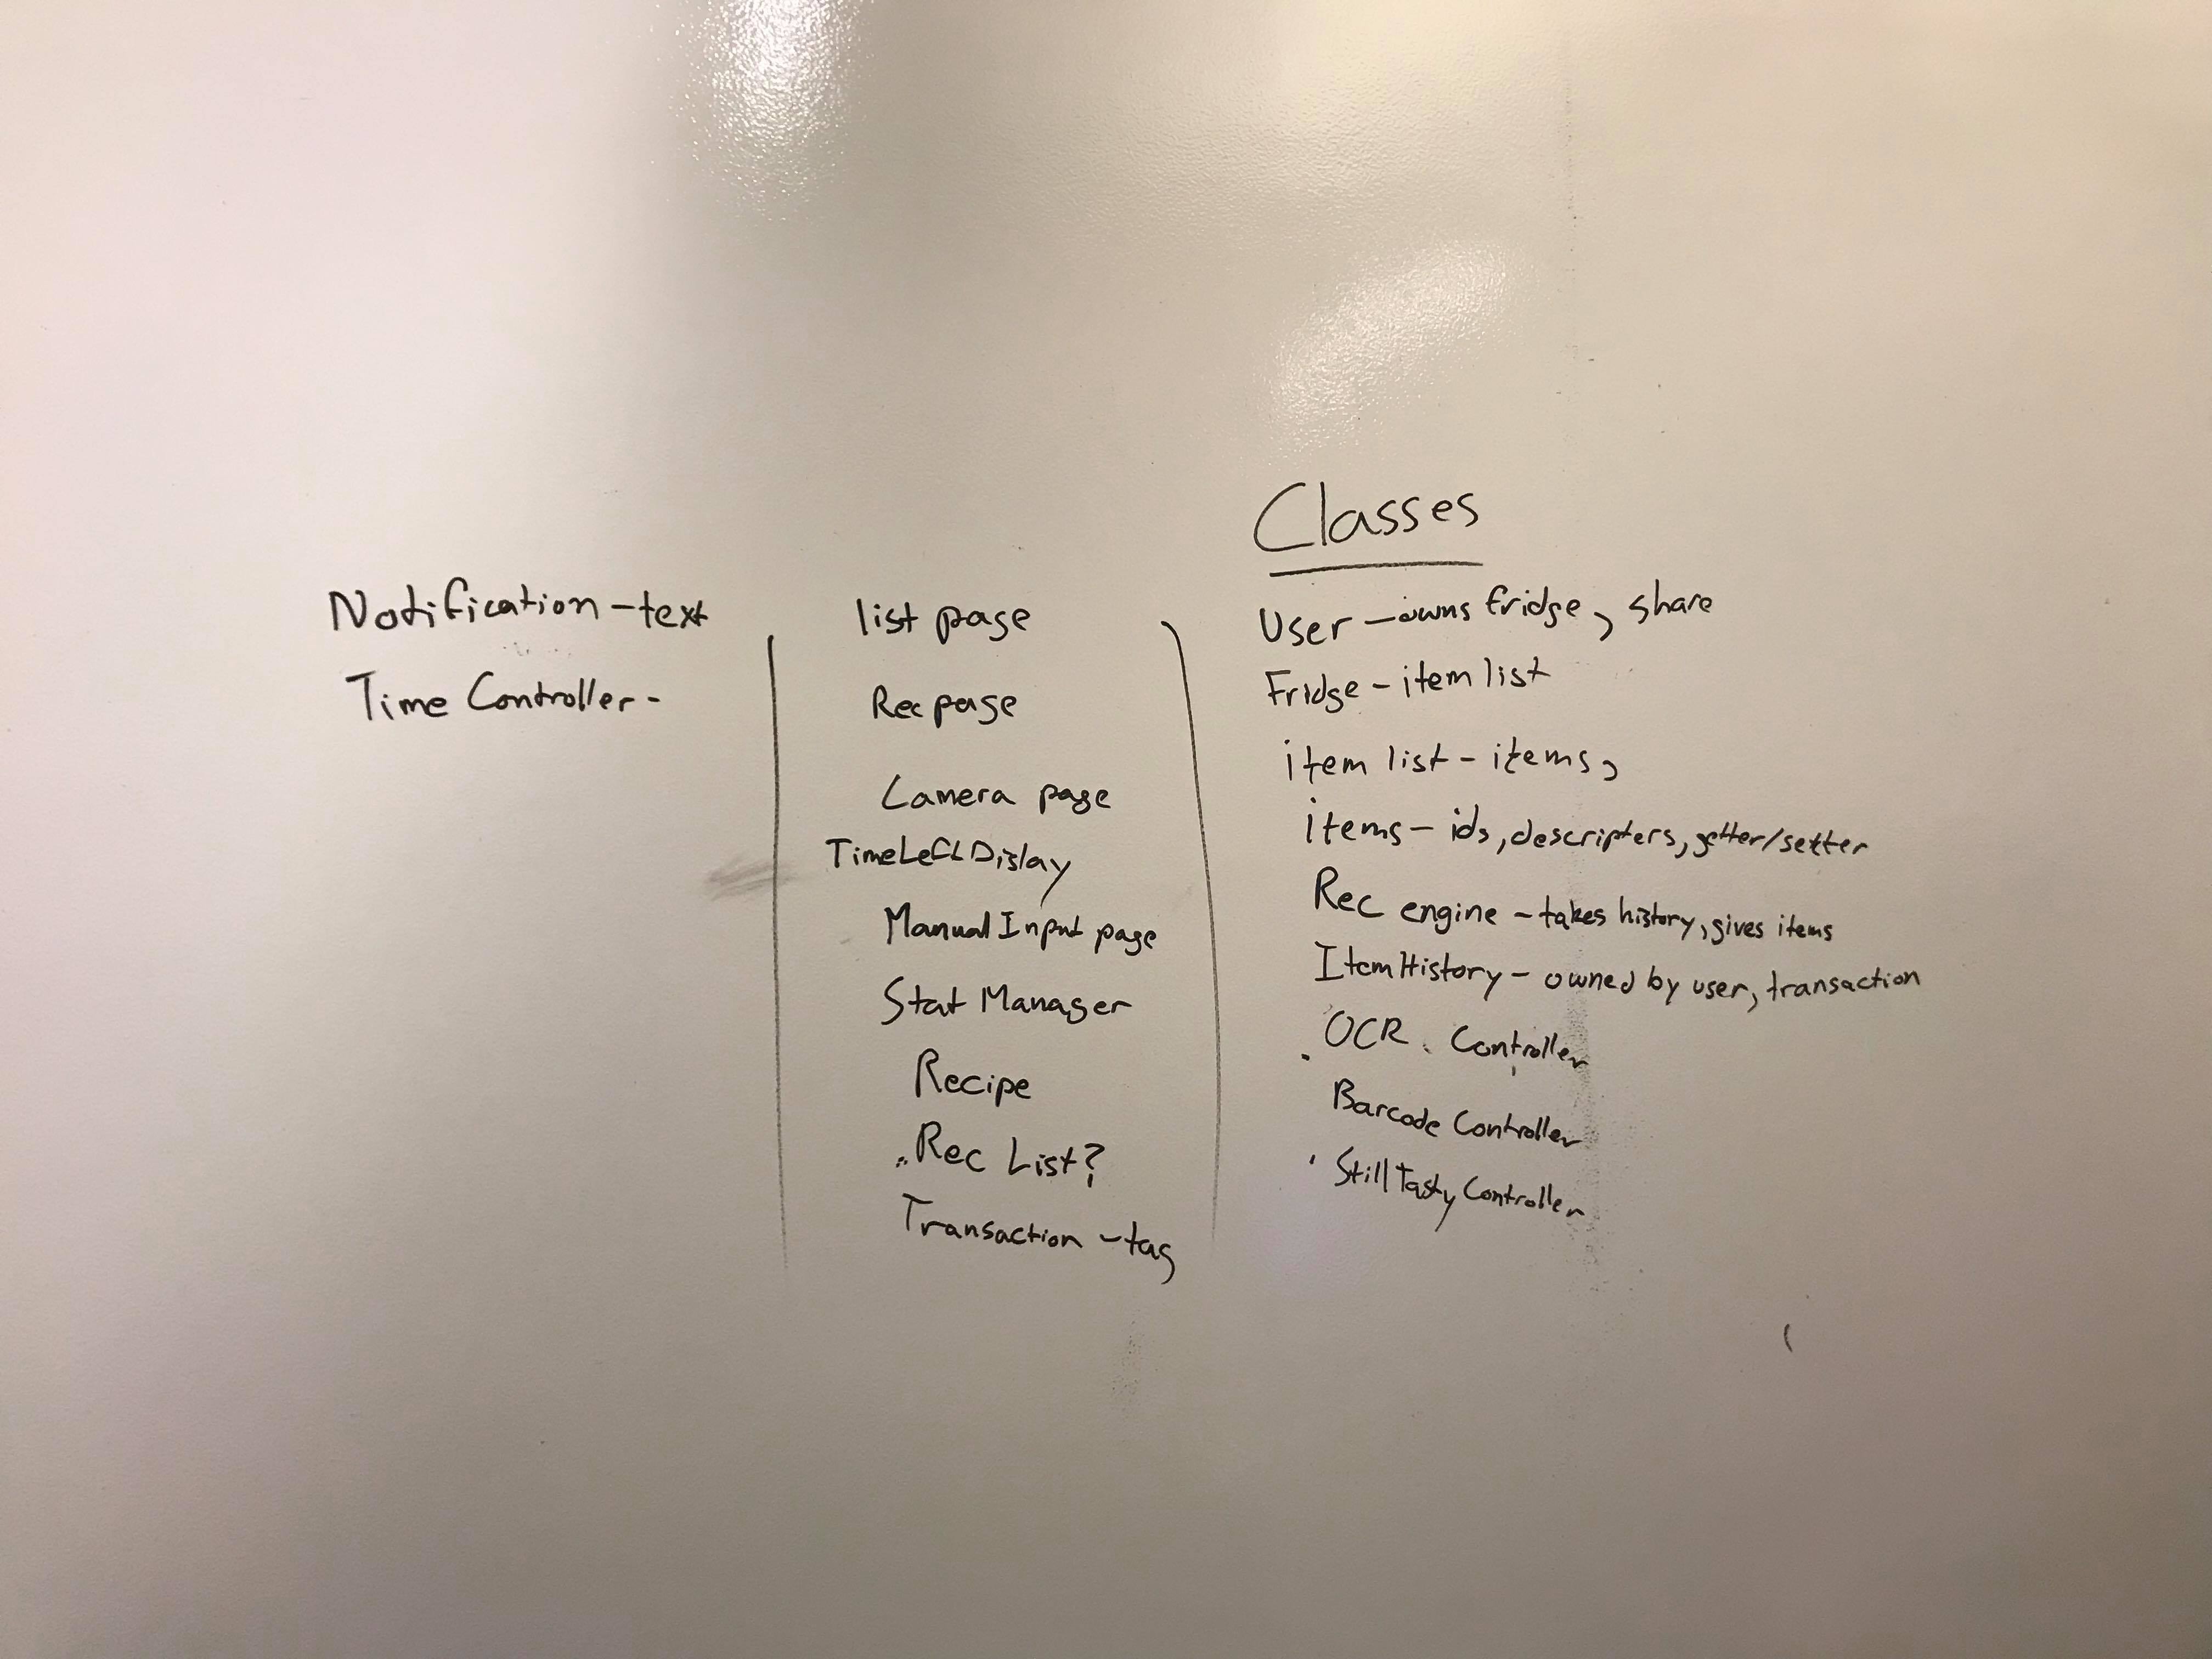 Classes
Notification - text
Time Controller -
list page
Rec page
Camera page
TimeLeftDislay
Manual Input page
Stat Manager
Recipe
Rec List?
Transaction - tag
User - owns fridge, share
Fridge - item list
item list - items,
items - ids, descripters, getter/setter
Rec engine - takes history, gives items
ItemHistory - owned by user, transaction
OCR Controller
Barcode Controller
StillTasty Controller